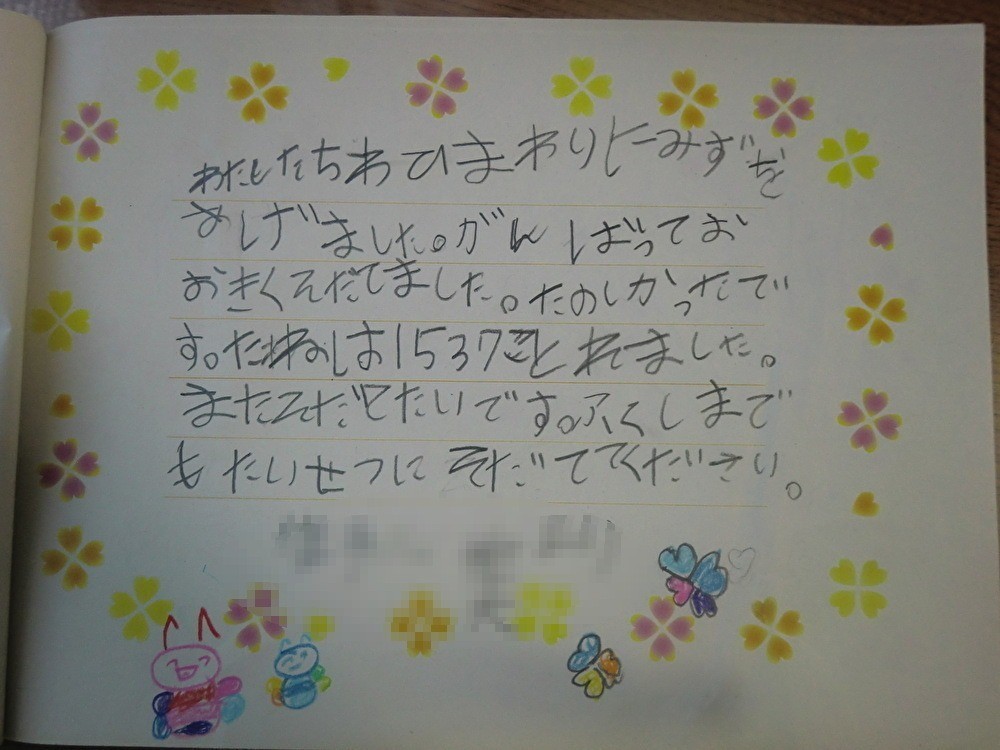 わたしたちわひまわりにみずを
あげました。がんばってお
おきくそだてました。たのしかったで
す。たねは1537ことれました。
またそだてたいです。ふくしまで
もたいせつにそだててください。